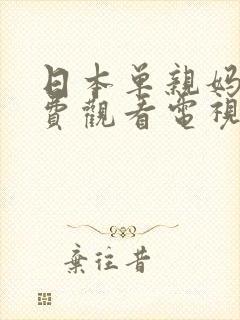 日本单親妈
費觀看電視
棄往昔